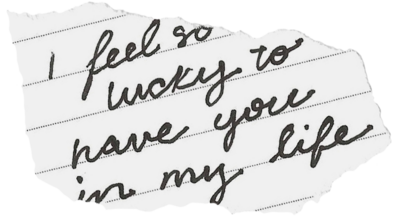 I feel so
lucky to
have you
in my life